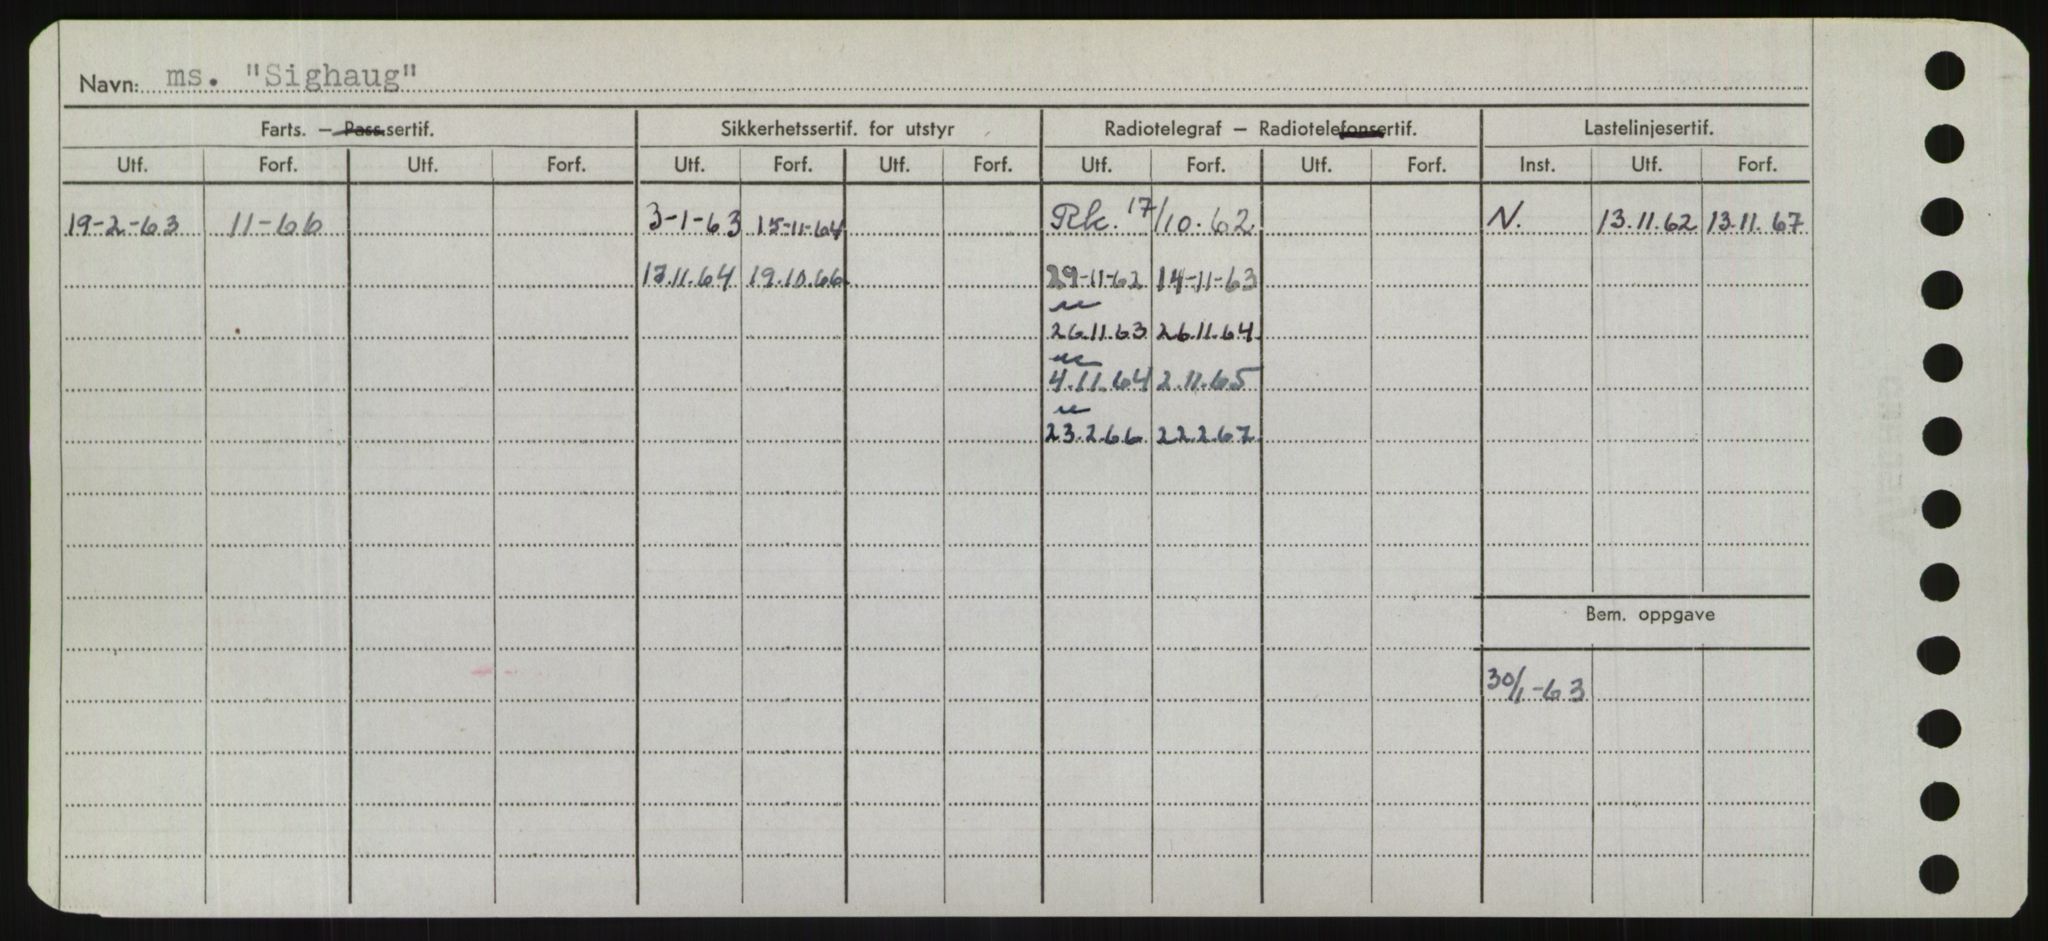 Navn: ms. "Sighaug"
Farts. – Pass.sertif. Sikkerhetssertif. for utstyr Radiotelegraf – Radiotelefonsertif. Lastelinjesertif.
Utf. Forf. Utf. Forf. Utf. Forf. Utf. Forf. Utf. Forf. Utf. Forf. Inst. Utf. Forf.
19-2-63 11-66 3-1-63 15-11-64 Rk. 17/10.62 N. 13.11.62 13.11.67
17.11.64 19.10.66 29-11-62 14-11-63
26.11.63 26.11.64
4.11.64 2.11.65
23.2.66 22.2.67
Bem. oppgave
30/1-63